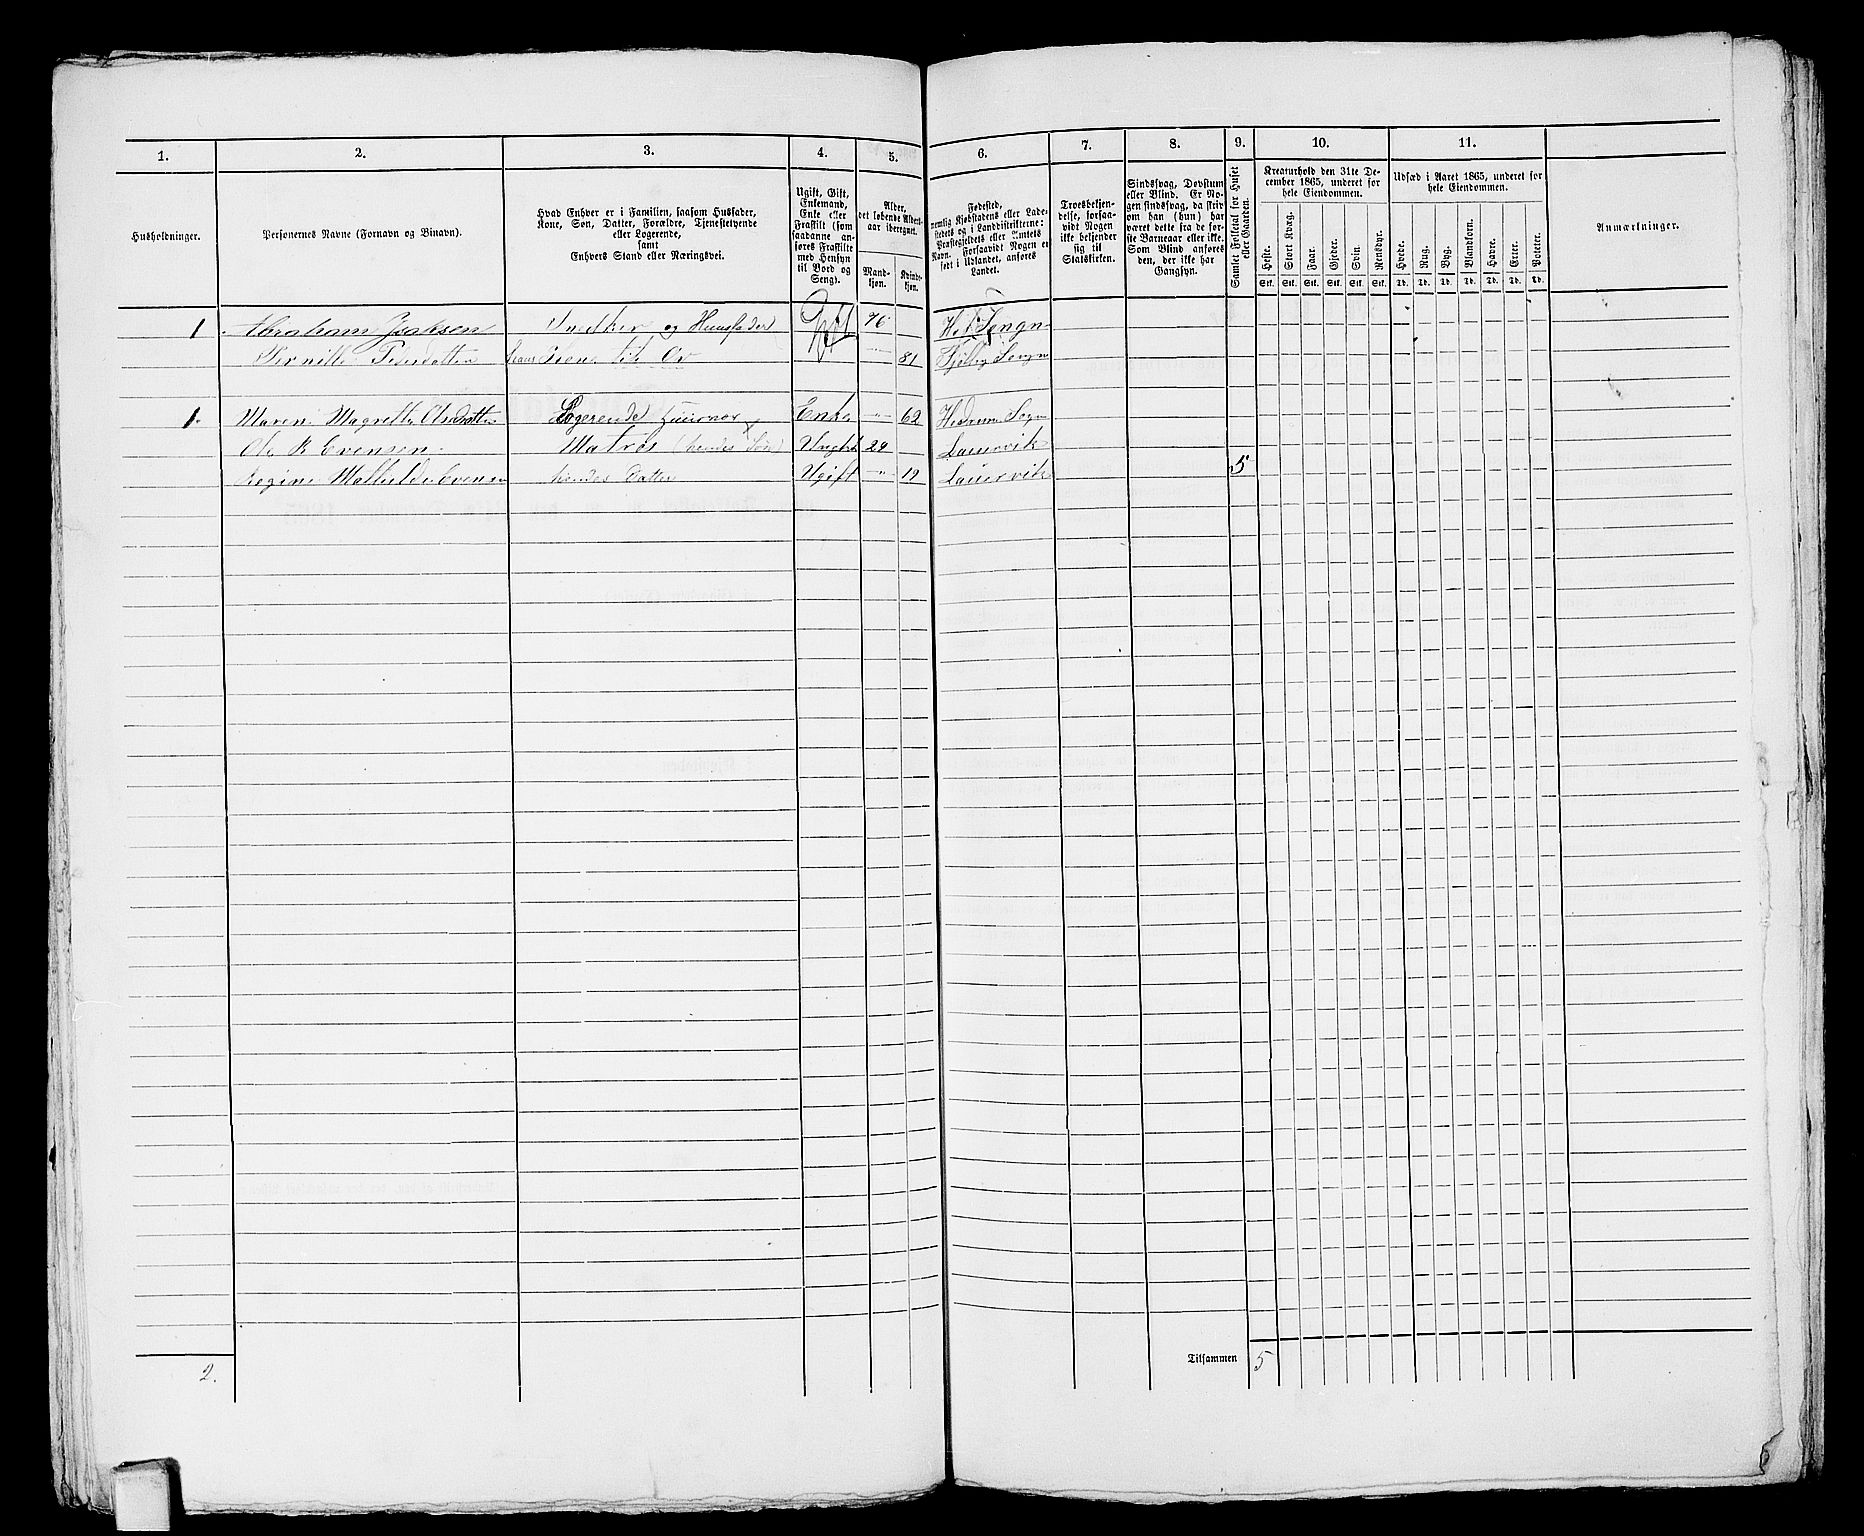 1. 2. 3. 4. 5. 6. 7. 8. 9. 10. 11.
Husholdninger.
Personernes Navne (Fornavn og Binavn).
Hvad Enhver er i Familien, saasom Husfader,
Kone, Søn, Datter, Forældre, Tjenestetyende
eller Logerende,
samt
Enhvers Stand eller Næringsvei.
Ugift, Gift,
Enkemand,
Enke eller
Fraskilt (som
saadanne an-
føres Fraskilte
med Hensyn
til Bord og
Seng).
Alder,
det løbende Alders-
aar iberegnet.
Mand-
kjøn.
Kvinde-
kjøn.
Fødested,
nemlig Kjøbstadens eller Lade-
stedets og i Landdistrikterne:
Præstegjeldets eller Annexets
Navn. Forsaavidt Nogen er
født i Udlandet, anføres
Landet.
Troesbekjen-
delse, forsaa-
vidt Nogen
ikke bekjender
sig til
Statskirken.
Sindssvag, Døvstum
eller Blind. Er No-
gen sindssvag, da skriv
om han (hun) har
været dette fra de før-
ste Barneaar eller ikke.
Som Blind anføres
den, der ikke har
Gangsyn.
Samlet Folketal for Huset
eller Gaarden.
Kreaturhold den 31te De-
cember 1865, underet for
hele Eiendommen.
Heste. Stort Kvæg. Faar. Gjeder. Svin. Rensdyr.
Stk. Stk. Stk. Stk. Stk. Stk.
Udsæd i Aaret 1865, underet for
hele Eiendommen.
Hvede. Rug. Byg. Blandkorn. Havre. Erter. Poteter.
Td. Td. Td. Td. Td. Td. Td.
Anmærkninger.
1 Abraham Isaksen Snedker og Huusfader Gift 76
Pernille Pedersdatter Hans Kone 81 Sogn
1. Maren Magrette Logerende Enke " 62 Hedrum Sogn
Ole R Evensen Matros (hendes Søn) Ungkl 24 Laurvik
Regine Mathilde Evensen hendes Datter Ugift " 19 Laurvik 5
2.
Tilsammen 5